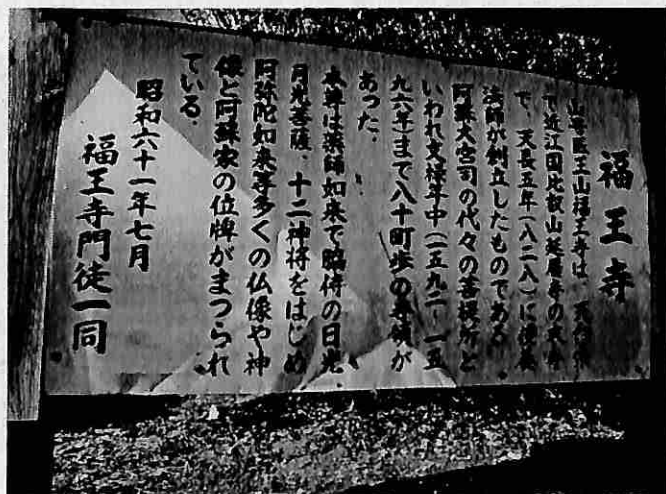 福王寺
山号医王山福王寺は、天台宗
で近江国比叡山延暦寺の末寺
で、天長五年(八二八)に
法師が創立したものである。
阿蘇大宮司の代々の菩提所と
いわれ文禄年中(一五九二〜一五
九六年)まで八十町歩の寺領が
あった。
本尊は薬師如来で脇侍の日光、
月光菩薩、十二神将をはじめ
阿弥陀如来等多くの仏像や神
像と阿蘇家の位牌がまつられ
ている。
昭和六十一年七月
福王寺門徒一同